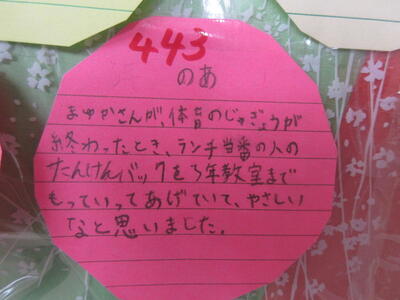 443
のあ
まゆかさんが、体育のじゅぎょうが
終わったとき、ランチ当番の人の
たんけんバックを3年教室まで
もっていってあげていて、やさしい
なと思いました。